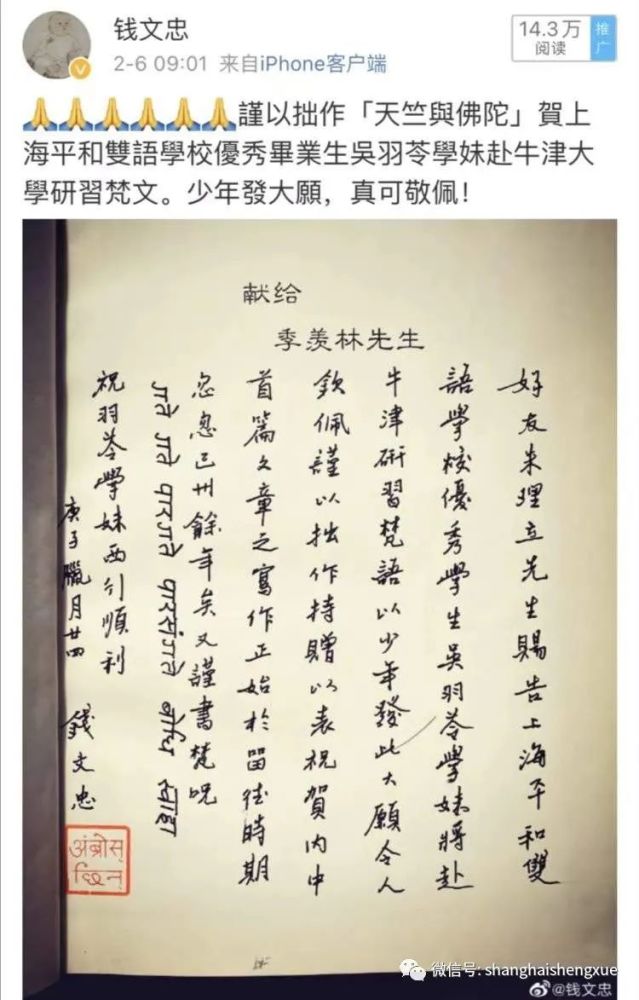 钱文忠
2-6 09:01 来自iPhone客户端
14.3万
阅读
推
广
🙏🙏🙏🙏🙏🙏謹以拙作「天竺與佛陀」賀上
海平和雙語學校優秀畢業生吳羽苓學妹赴牛津大
學研習梵文。少年發大願，真可敬佩！
献给
季羡林先生
好友朱理立先生賜告上海平和雙
語學校優秀學生吳羽苓學妹將赴
牛津研習梵語以少年發此大願令人
欽佩謹以拙作持贈以表祝賀內中
首篇文章之寫作正始於留德時期
忽忽已卅餘年矣又謹書梵呪
गते गते पारगते पारसंगते बोधि स्वाहा
祝羽苓學妹西行順利
庚子臘月廿四 錢文忠
अंब्रोस्
छ्यिन्
微信号: shanghaishengxue
@钱文忠